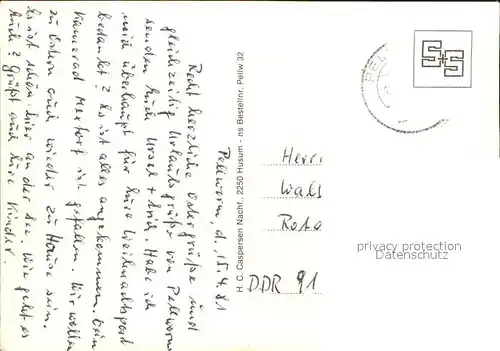 Pellworm, d. 15.4.81
Recht herzliche Ostergrüße und
gleichzeitig Urlaubsgrüße von Pellworm
senden Euch Ursel + Erich. Habe ich
mich überhaupt für Eure Weihnachtspost
bedankt? Es ist alles angekommen. Dein
Kamerad ist gefallen. Wir wollen
zu Ostern auch wieder zu Hause sein.
Es ist schön hier an der See. Wie geht es
Euch? Grüßt auch Eure Kinder.
H. C. Caspersen Nachf., 2250 Husum - ns Bestellnr. Pellw 32
PEL
Herr
Wals
Rosa
DDR 91
privacy protection
Datenschutz